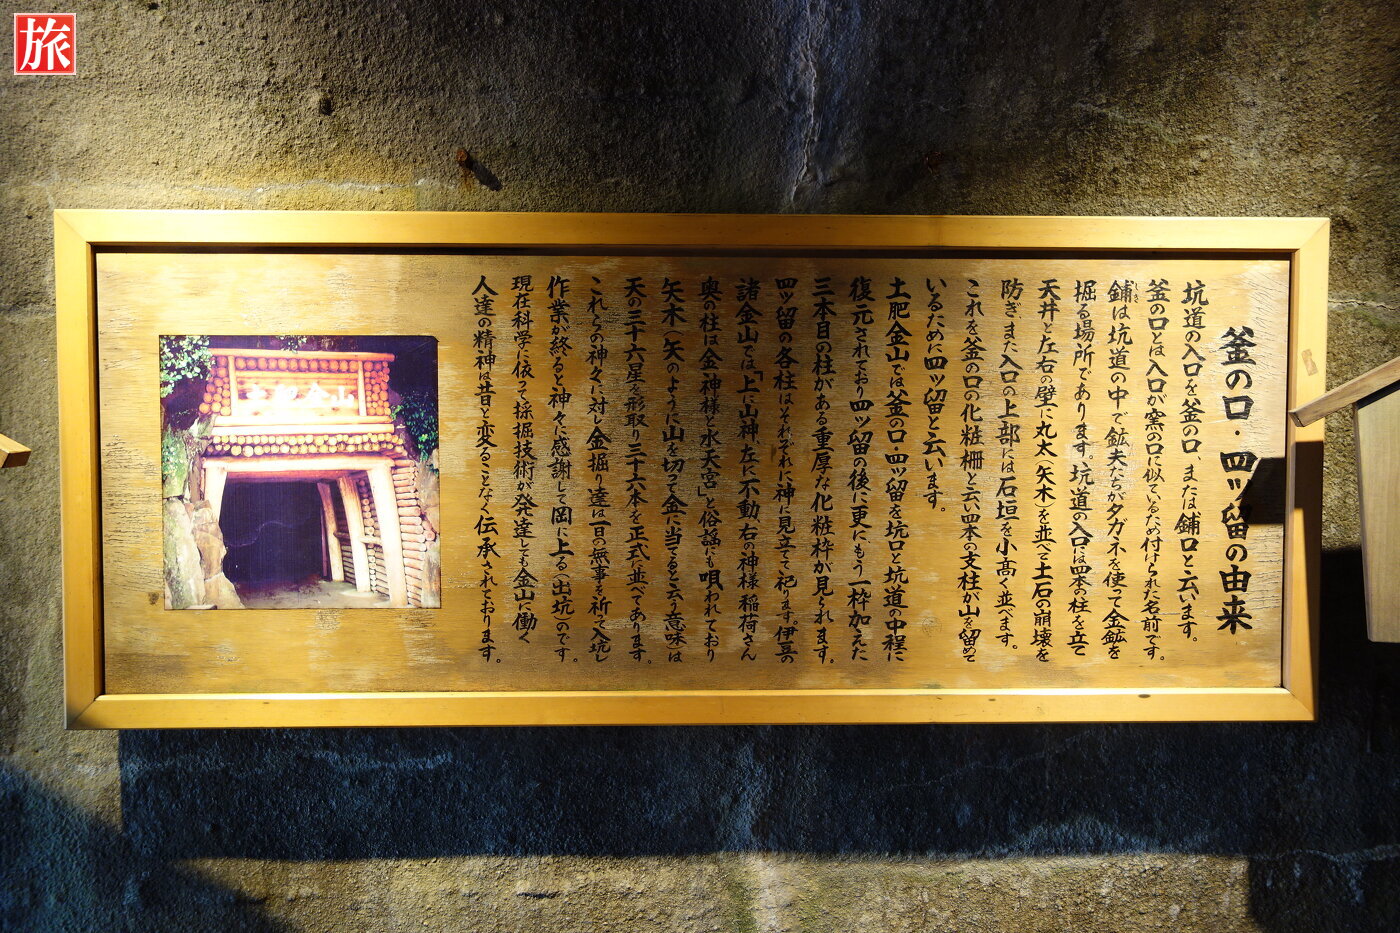 旅
釜の口・四ッ留の由来
坑道の入口を釜の口、または鋪口と云います。
釜の口とは入口が窯の口に似ているため付けられた名前です。
鋪は坑道の中で鉱夫たちがタガネを使って金鉱を
しき
掘る場所であります。坑道の入口には四本の柱を立て
天井と左右の壁に丸太(矢木)を並べ土石の崩壊を
防ぎまた入口の上部には石垣を小高く並べます。
これを釜の口の化粧柵と云い四本の支柱が山を留めて
いるために四ッ留と云います。
土肥金山では釜の口四ッ留を坑口と坑道の中程に
復元されており四ッ留の後に更にもう一枠加えた
三本目の柱がある重厚な化粧枠が見られます。
四ッ留の各柱はそれぞれに神に見立て祀ります。伊豆の
諸金山では「上に山神、左に不動、右の神様稲荷さん
奥の柱は金神様と水天宮」と俗謡にも唄われており
矢木(矢のように山を切って金に当てると云う意味)は
天の三十六星を形取り三十六本を正式に並べてあります。
これらの神々に対し金掘り達は一日の無事を祈って入坑し
作業が終ると神々に感謝して岡に上る(出坑)のです。
現在科学に依って採掘技術が発達しても金山に働く
人達の精神は昔と変ることなく伝承されております。
土肥金山